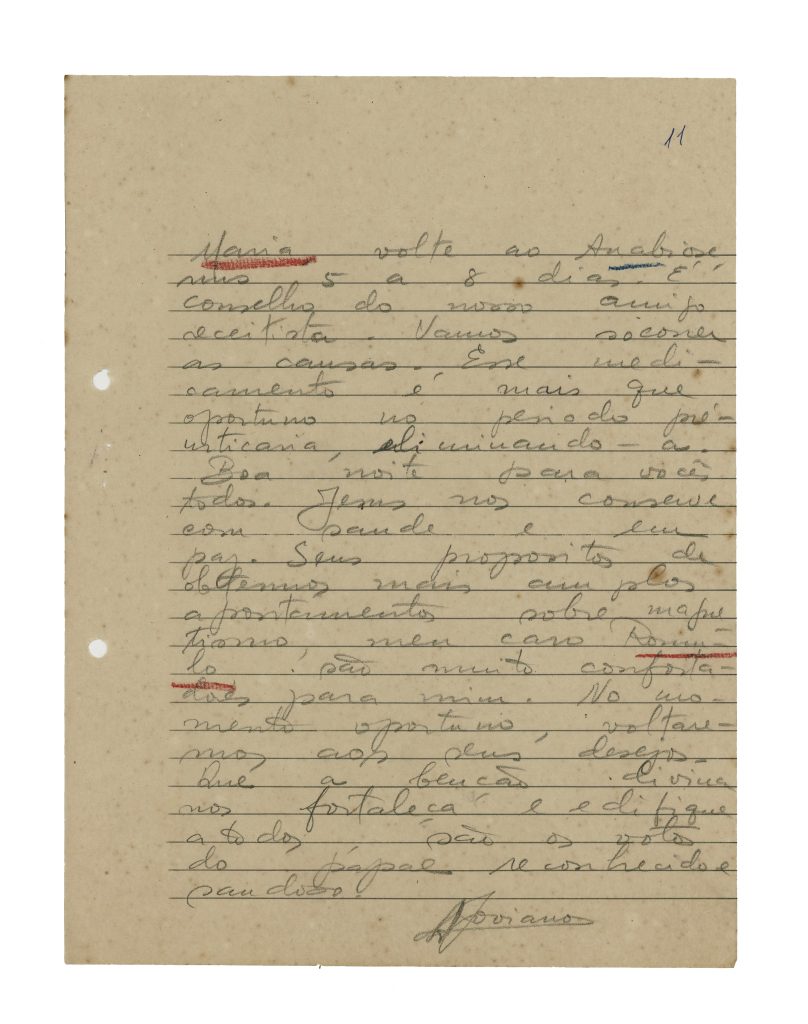 11
Maria volte ao Anabiose
nus 5 a 8 dias. É
conselho do nosso amigo
receitista. Vamos socorrer
as causas. Esse medi-
camento é mais que
oportuno no periodo pré-
urticaria, eliminando-a.
Boa noite para vocês
todos. Jesus nos conserve
com saude e em
paz. Seus propositos de
obtermos mais amplos
apontamentos sobre magne
tismo, meu caro Romu-
lo são muito conforta-
dores para mim. No mo-
mento oportuno, voltare-
mos aos seus desejos.
Que a bencão divina
nos fortaleça e edifique
a todos são os votos
do papae reconhecido e
saudoso.
Joviano